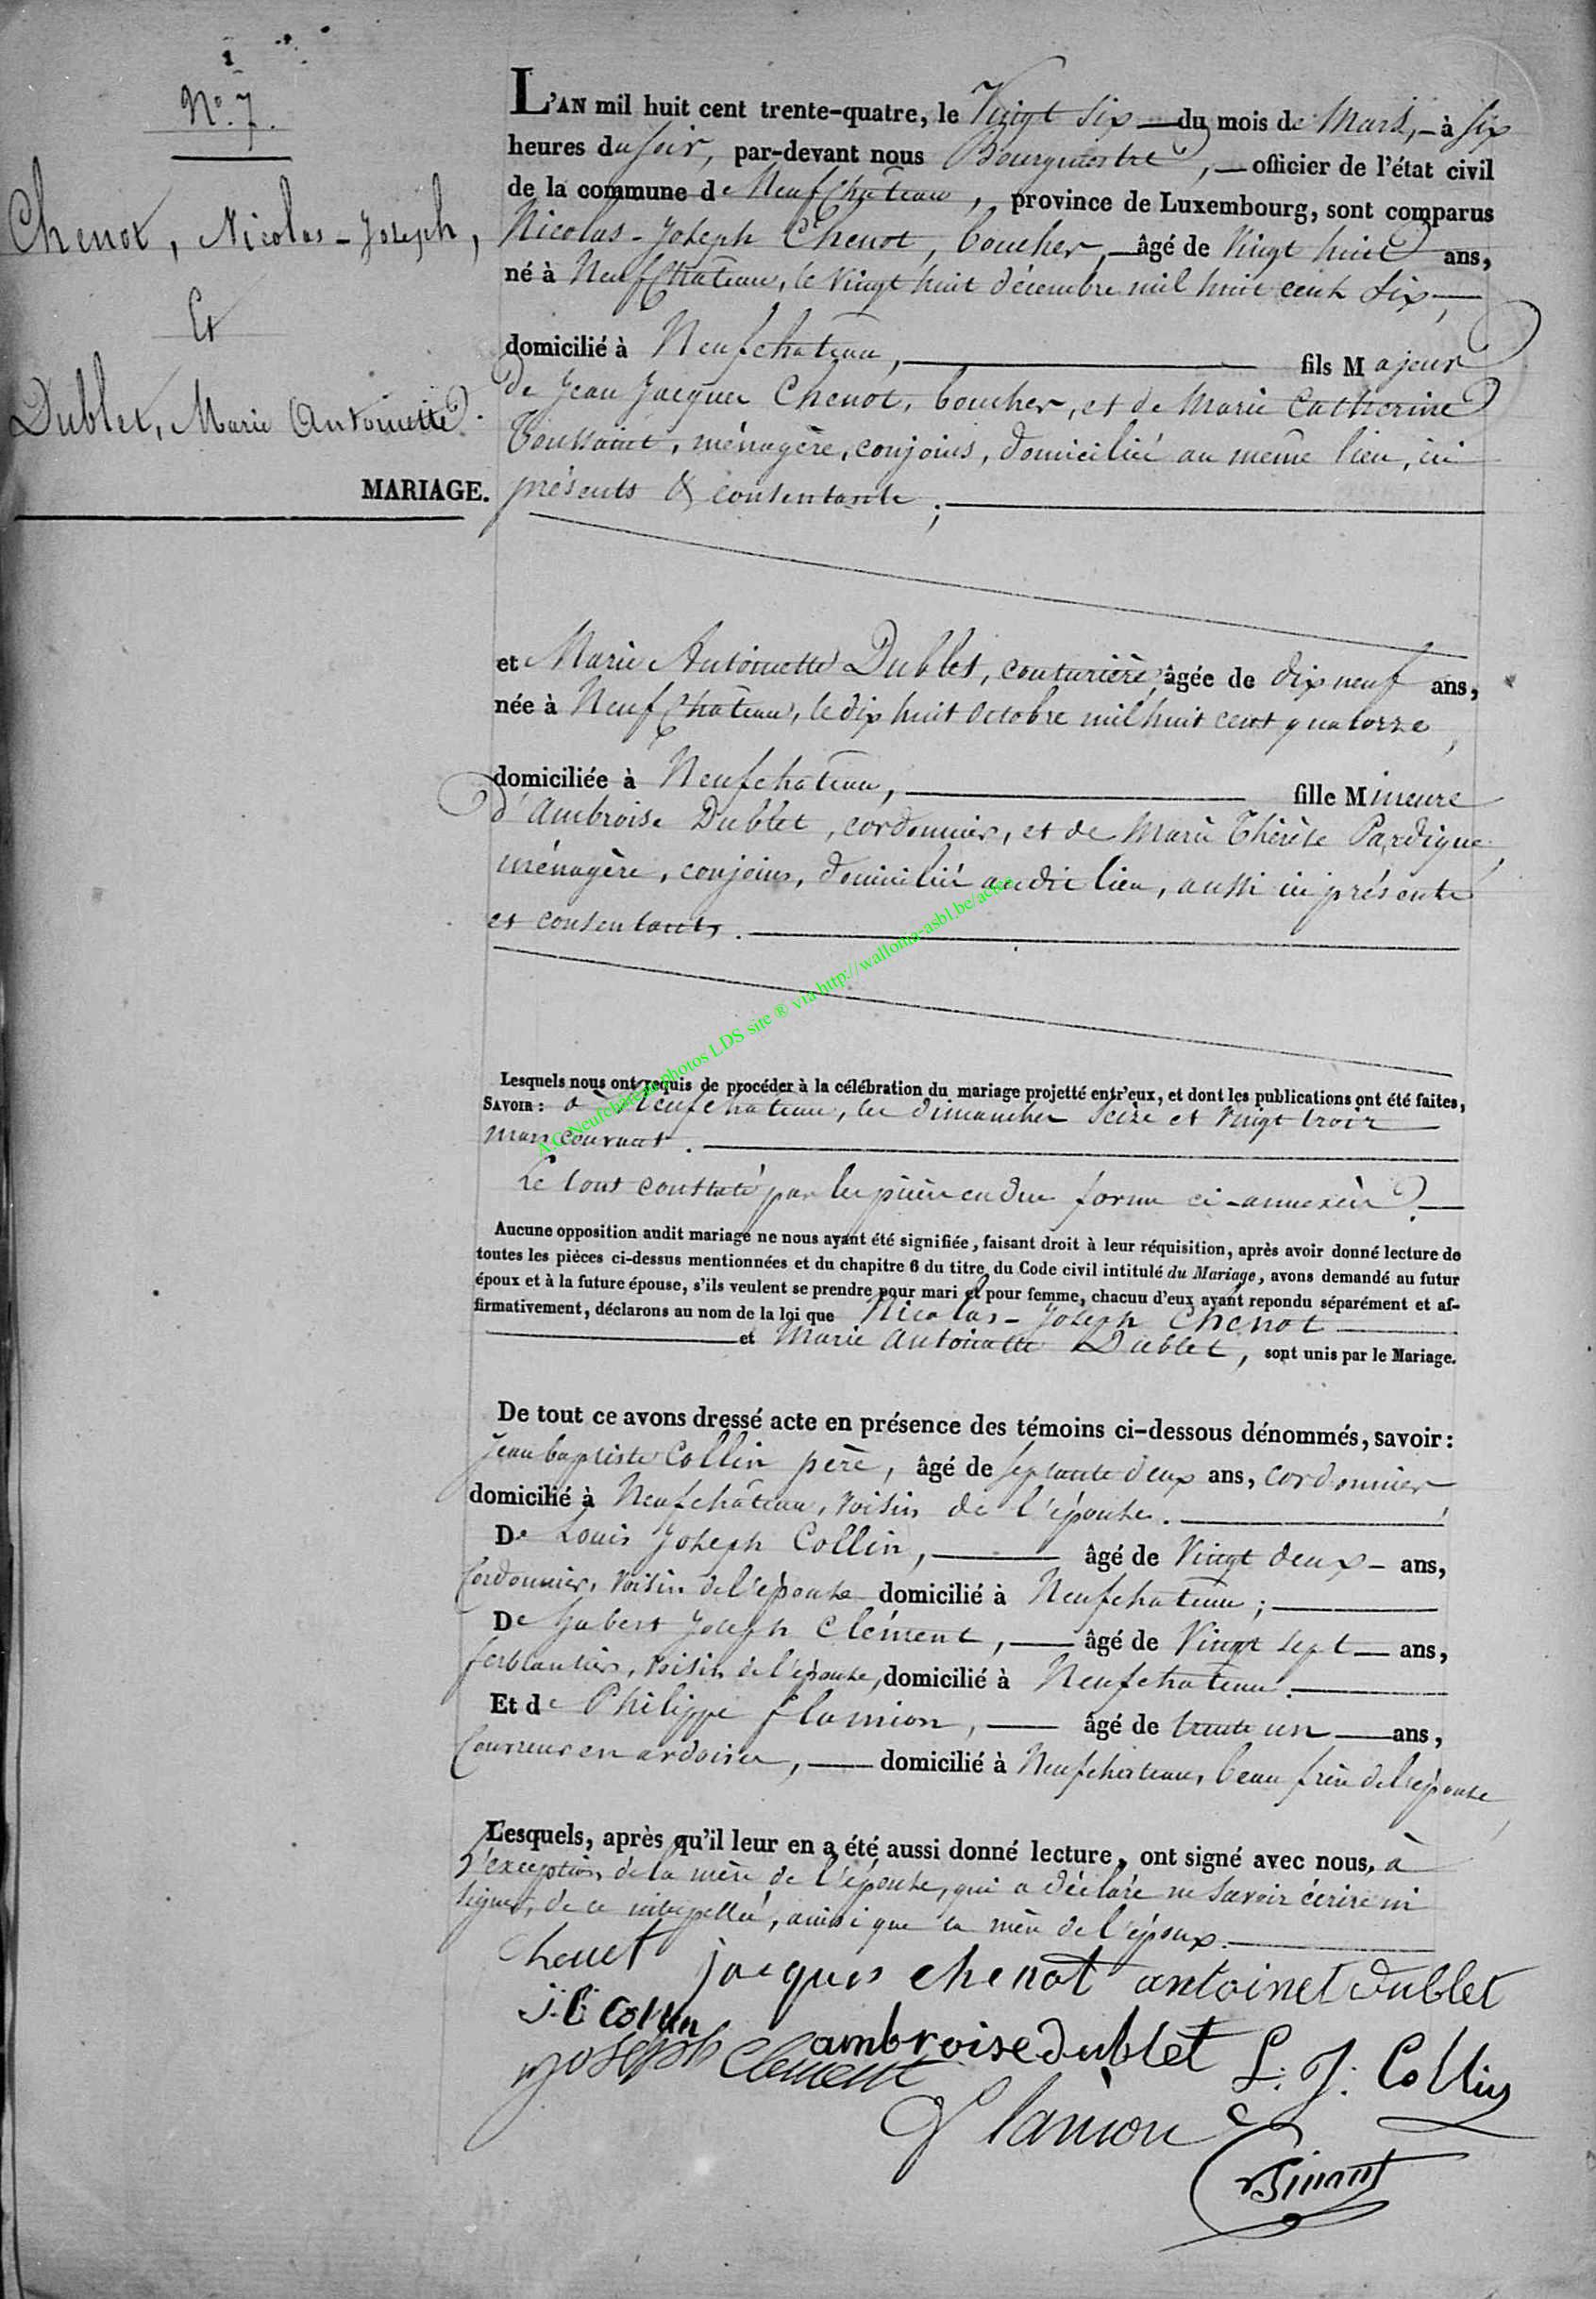 N.o 7.
Chenot, Nicolas-Joseph,
Et
Dublet, Marie Antoinette.
MARIAGE.
L'AN mil huit cent trente-quatre, le Vingt six du mois de Mars, à six
heures du soir, par-devant nous Bourgmestre, officier de l'état civil
de la commune de Neufchâteau, province de Luxembourg, sont comparus
Nicolas-Joseph Chenot, boucher, âgé de Vingt huit ans,
né à Neufchâteau, le vingt huit décembre mil huit cent six,
domicilié à Neufchateau, fils Majeur
de Jean Jacques Chenot, boucher, et de Marie Catherine
Toussaint, ménagère, conjoins, domiciliés au même lieu, ici
présents & consentants;
et Marie Antoinette Dublet, couturière, âgée de dix neuf ans,
née à Neufchâteau, le dix huit octobre mil huit cent quatorze,
domiciliée à Neufchateau, fille Mineure
d'Ambroise Dublet, cordonnier, et de Marie Thérèse Pardique,
ménagère, conjoins, domiciliés audit lieu, aussi ici présents
et consentants.
Lesquels nous ont requis de procéder à la célébration du mariage projetté entr'eux, et dont les publications ont été faites,
SAVOIR: à Neufchateau, les dimanches seize et vingt trois
mars courant.
Le tout constaté par les pièces en due forme ci-annexées.
Aucune opposition audit mariage ne nous ayant été signifiée, faisant droit à leur réquisition, après avoir donné lecture de
toutes les pièces ci-dessus mentionnées et du chapitre 6 du titre du Code civil intitulé du Mariage, avons demandé au futur
époux et à la future épouse, s'ils veulent se prendre pour mari et pour femme, chacun d'eux ayant repondu séparément et af-
firmativement, déclarons au nom de la loi que Nicolas-Joseph Chenot
et Marie Antoinette Dublet, sont unis par le Mariage.
De tout ce avons dressé acte en présence des témoins ci-dessous dénommés, savoir:
Jean baptiste Collin père, âgé de septante deux ans, cordonnier,
domicilié à Neufchâteau, voisin de l'épouse.
De Louis Joseph Collin, âgé de Vingt deux ans,
Cordonnier, voisin de l'épouse domicilié à Neufchateau;
De hubert Joseph Clément, âgé de Vingt sept ans,
ferblantier, voisin de l'épouse, domicilié à Neufchateau.
Et de Philippe flamion, âgé de trente un ans,
Couvreur en ardoises, domicilié à Neufchateau, beau frère de l'épouse,
Lesquels, après qu'il leur en a été aussi donné lecture, ont signé avec nous, à
l'exception de la mère de l'épouse, qui a déclaré ne savoir écrire ni
signer, de ce interpellée, ainsi que la mère de l'époux.
Chenot jacques chenot antoinet dublet
j. B Collin
ambroise dublet L. J. Collin
joseph Clement
Flamion
A.C. Neufchâteau photos LDS site ® via http://wallonia-asbl.be/actes